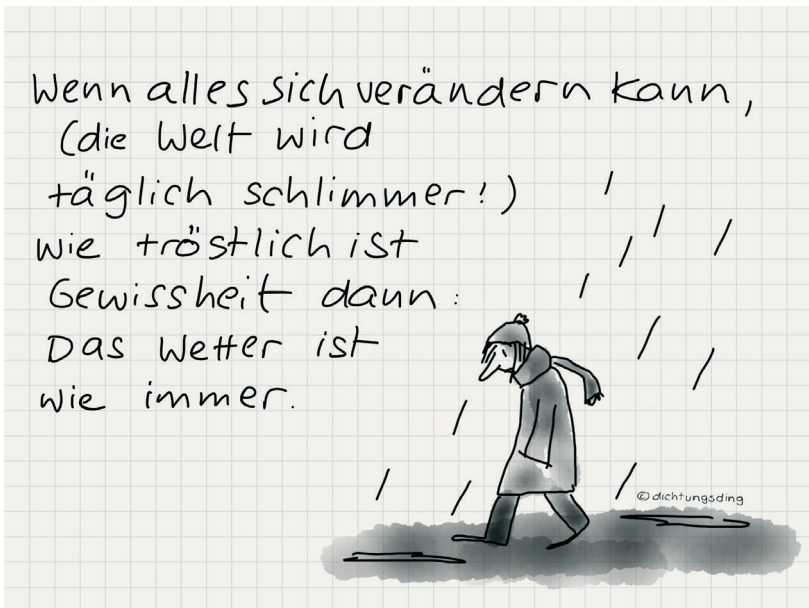 Wenn alles sich verändern kann,
(die Welt wird
täglich schlimmer!)
wie tröstlich ist
Gewissheit dann:
Das Wetter ist
wie immer.
© dichtungsding